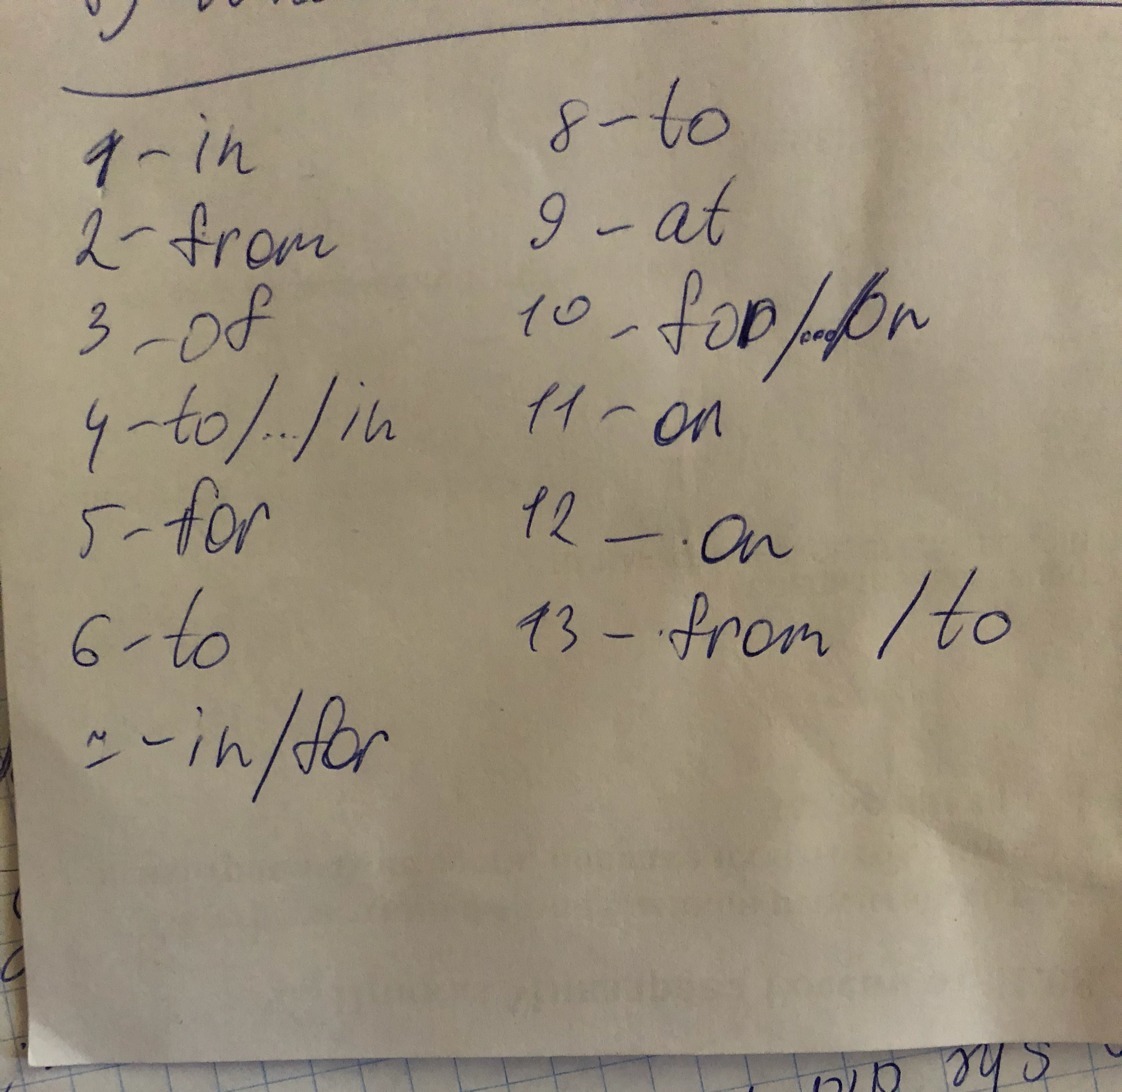 1 - in
2 - from
3 - of
4 - to/.../in
5 - for
6 - to
- in/for
8 - to
9 - at
10 - for/.../on
11 - on
12 - on
13 - from / to
she